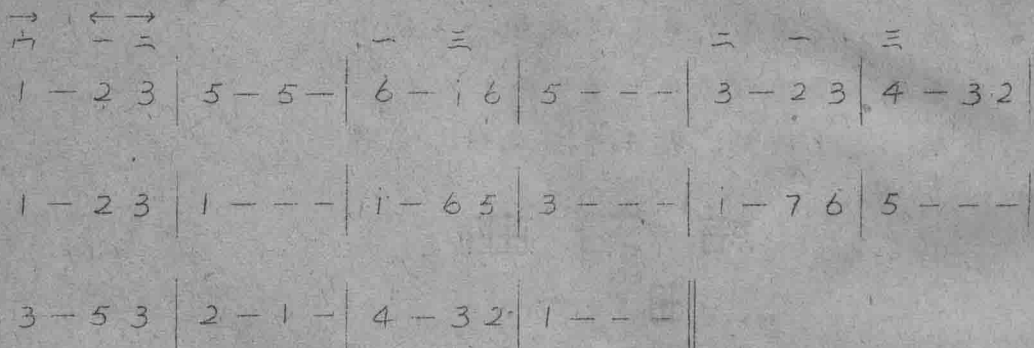 → ← →
六 一 三 一 三 二 一 三
1 - 2 3 | 5 - 5 - | 6 - i 6 | 5 - - - | 3 - 2 3 | 4 - 3 2 |
1 - 2 3 | 1 - - - | i - 6 5 | 3 - - - | i - 7 6 | 5 - - - |
3 - 5 3 | 2 - 1 - | 4 - 3 2 | 1 - - - ||